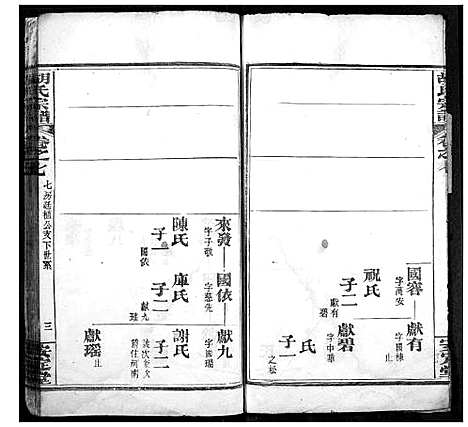 胡氏宗譜
卷之七
國容
字萬安
獻有
字國棟
止
祝氏
子二
獻有
碧
獻碧
字中華
氏
子一
之松
來發
字子敬
國依
字慈先
獻九
字國瑞
陳氏
子一
國依
庫氏
子二
獻九
瑤
謝氏
子二
獻瑶
止
胡氏宗譜
卷之七
七房廷楨公支下世系
三
安定堂